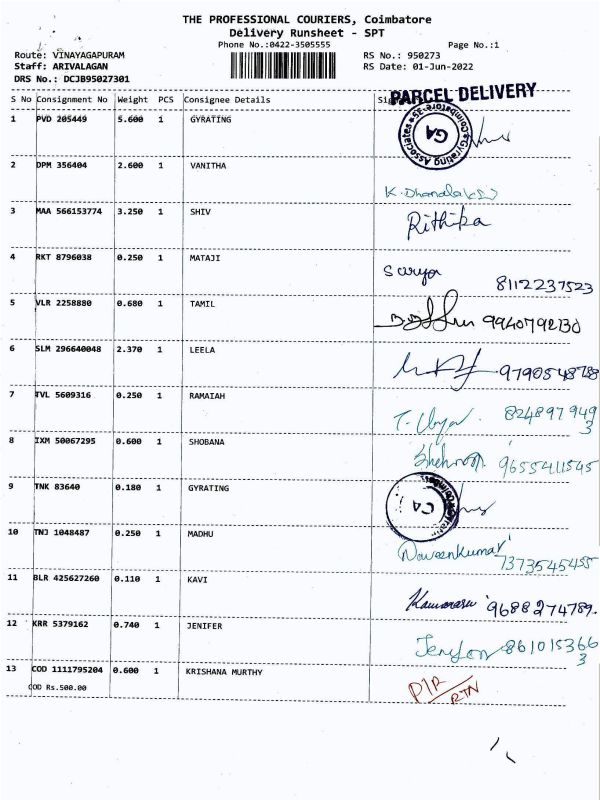 THE PROFESSIONAL COURIERS, Coimbatore
Delivery Runsheet - SPT
Phone No.:0422-3505555 Page No.:1
Route: VINAYAGAPURAM RS No.: 950273
Staff: ARIVALAGAN RS Date: 01-Jun-2022
DRS No.: DCJB95027301
PARCEL DELIVERY
S No Consignment No Weight PCS Consignee Details
1 PVD 205449 5.600 1 GYRATING
Gyrating Associates Coimbatore-35
GA
2 DPM 356404 2.600 1 VANITHA
K. Dhanalakshmi
3 MAA 566153774 3.250 1 SHIV Rithika
4 RKT 8796038 0.250 1 MATAJI Surya 8112237523
5 VLR 2258880 0.680 1 TAMIL 9940792130
6 SLM 296640048 2.370 1 LEELA 9790548788
7 TVL 5609316 0.250 1 RAMAIAH 8248979493
8 IXM 50067295 0.600 1 SHOBANA 9655411545
9 TNK 83640 0.180 1 GYRATING
GA
10 TNJ 1048487 0.250 1 MADHU Naveenkumar 7373545455
11 BLR 425627260 0.110 1 KAVI 9688274789.
12 KRR 5379162 0.740 1 JENIFER 8610153663
13 COD 1111795204 0.600 1 KRISHANA MURTHY P/R
COD Rs.500.00 RTN